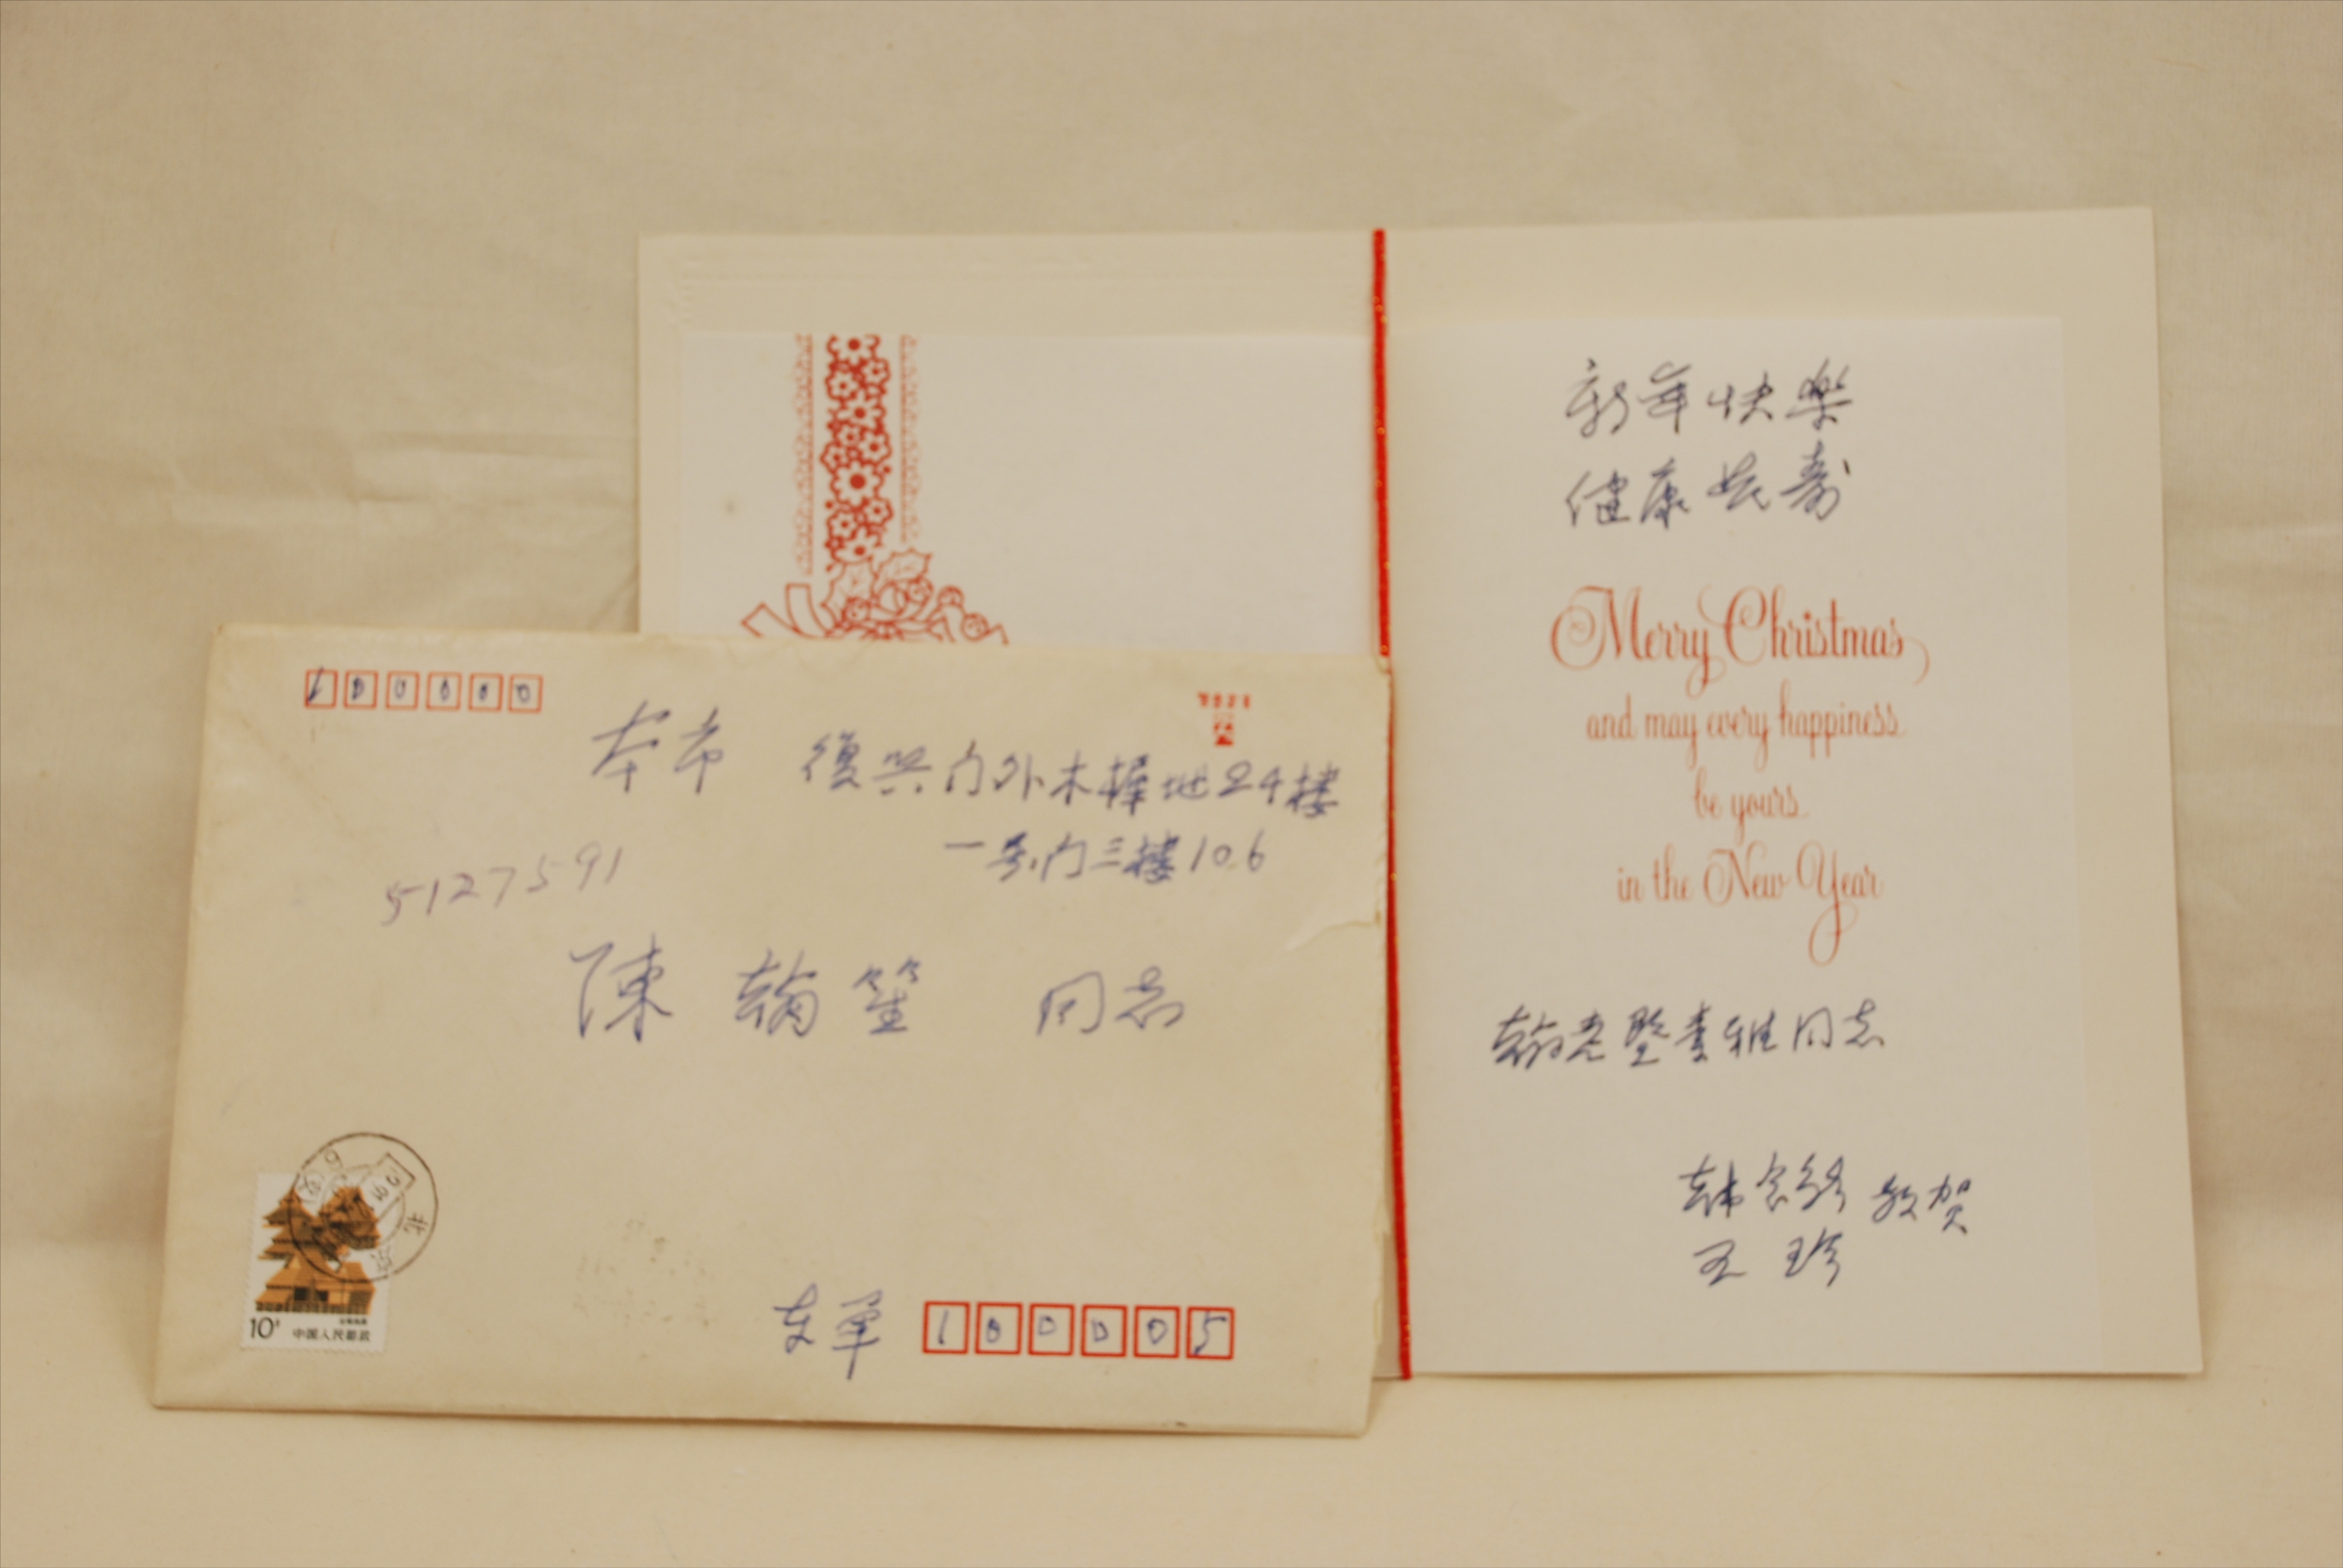 100000
本市 復兴门外木樨地24楼
一号门三楼106
5127591
陳翰笙 同志
北京
10分 中国人民邮政
东单 100005
新年快樂
健康长寿
Merry Christmas
and may every happiness
be yours
in the New Year
翰老暨素雅同志
韩 敬贺
王珍